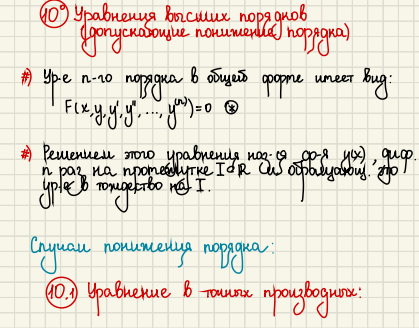 10° Уравнения высших порядков
(допускающие понижение порядка)
#) Ур-е n-го порядка в общей форме имеет вид:
F(x, y, y', y'', ..., y⁽ⁿ⁾) = 0 ⊛
#) Решением этого уравнения наз-ся ф-я y(x), диф.
n раз на промежутке I⊂R и обращающ. это
ур-е в тождество на I.
Случаи понижения порядка:
10.1 Уравнение в точных производных: